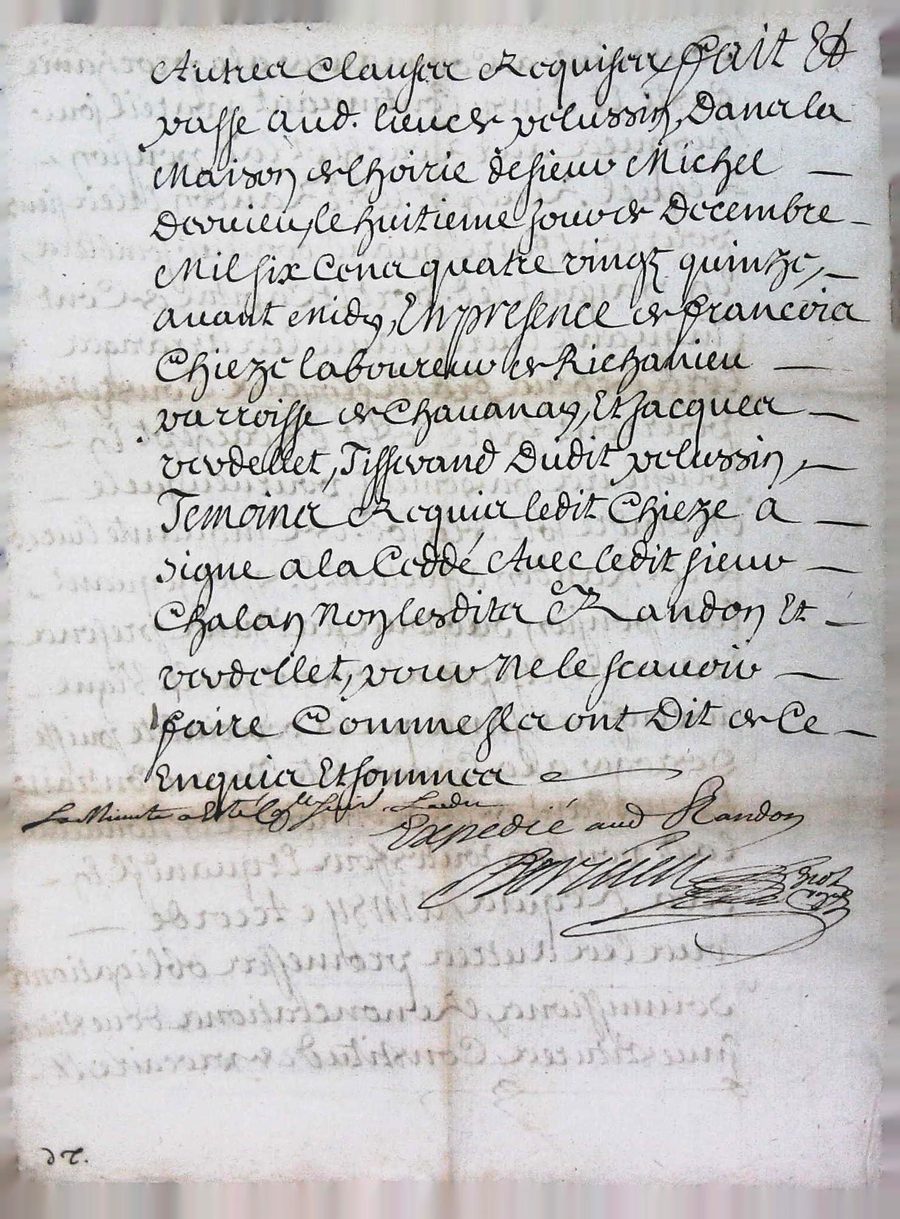 Autres Clauses Requises, fait Et
passe aud. lieu de pelussin, Dans la
Maison de lhoirie de sieur Michel
Dervieu, le huitieme jour de Decembre
Mil six Cens quatre vingt quinze,
avant Midy, En presence de francois
Chieze laboureur de Richanieu
parroisse de Chavanay, Et Jacques
verdellet, Tisserand Dudit pelussin,
Temoins Requis ledit Chieze a
signe a la Ceddé Avec ledit sieur
Chalan Non lesdits Randon Et
verdellet, pour Ne le scavoir
faire Comme Ils ont Dit de Ce
Enquis Et sommes
La Minute a Esté
Expedié aud Randon
Dervieu